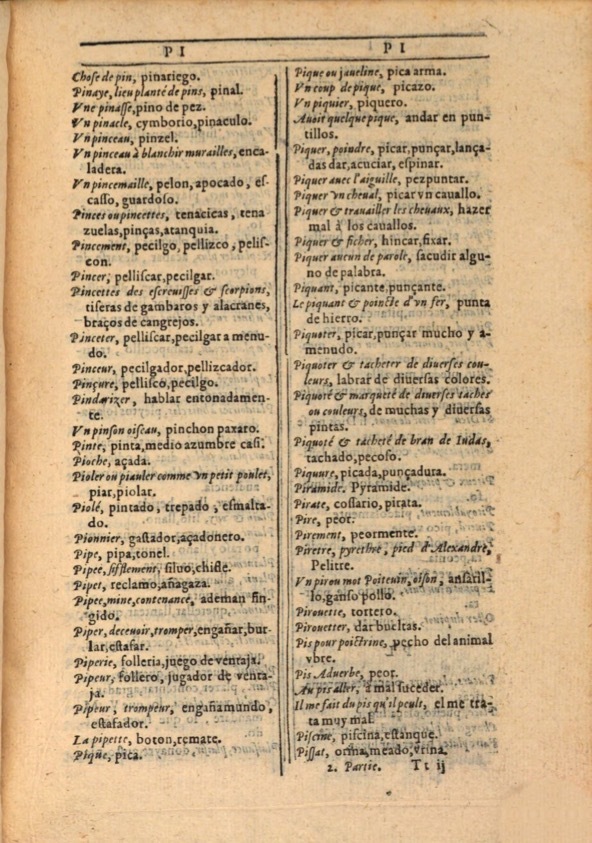 PI
PI
Chose de pin, pinariego.
Pinaye, lieu planté de pins, pinal.
Vne pinasse, pino de pez.
Vn pinacle, cymborio, pinaculo.
Vn pinceau, pinzel.
Vn pinceau à blanchir murailles, enca-
ladera.
Vn pincemaille, pelon, apocado, es-
casso, guardoso.
Pinces ou pincettes, tenacicas, tena
zuelas, pinças, atanquia.
Pincement, pecilgo, pellizco, pelis-
con.
Pincer, pelliscar, pecilgar.
Pincettes des escreuisses & scorpions,
tiseras de gambaros y alacranes,
braços de cangrejos.
Pinceter, pelliscar, pecilgar a menu-
do.
Pinceur, pecilgador, pellizcador.
Pinçure, pellisco, pecilgo.
Pindarizer, hablar entonadamen-
te.
Vn pinson oiseau, pinchon paxaro.
Pinte, pinta, medio azumbre casi.
Pioche, açada.
Pioler ou piauler comme vn petit poulet,
piar, piolar.
Piolé, pintado, trepado, esmalta-
do.
Pionnier, gastador, açadonero.
Pipe, pipa, tonel.
Pipee, sifflement, siluo, chifle.
Pipet, reclamo, añagaza.
Pipee, mine, contenance, ademan fin-
gido.
Piper, deceuoir, tromper, engañar, bur-
lar, estafar.
Piperie, folleria, juego de ventaja.
Pipeur, follero, jugador de venta-
ja.
Pipeur, trompeur, engañamundo,
estafador.
La pipette, boton, remate.
Pique, pica.
Pique ou jaueline, pica arma.
Vn coup de pique, picazo.
Vn piquier, piquero.
Auoir quelque pique, andar en pun-
tillos.
Piquer, poindre, picar, punçar, lança-
das dar, acuciar, espinar.
Piquer auec l'aiguille, pezpuntar.
Piquer vn cheual, picar vn cauallo.
Piquer & trauailler les cheuaux, hazer
mal à los cauallos.
Piquer & ficher, hincar, fixar.
Piquer aucun de parole, sacudir algu-
no de palabra.
Piquant, picante, punçante.
Le piquant & poincte d'vn fer, punta
de hierro.
Piquoter, picar, punçar mucho y a-
menudo.
Piquoter & tacheter de diuerses cou-
leurs, labrar de diuersas colores.
Piquoté & marqueté de diuerses taches
ou couleurs, de muchas y diuersas
pintas.
Piquoté & tacheté de bran de Iudas,
tachado, pecoso.
Piquure, picada, punçadura.
Piramide. Pyramide.
Pirate, cossario, pirata.
Pire, peor.
Pirement, peormente.
Piretre, pyrethre, pied d'Alexandre,
Pelitre.
Vn pirou mot Poiteuin, oison, ansaril-
lo, ganso pollo.
Pirouette, tortero.
Pirouetter, dar bueltas.
Pis pour poictrine, pecho del animal
vbre.
Pis Aduerbe, peor.
Au pis aller, a mal suceder.
Il me fait du pis qu'il peult, el me tra-
ta muy mal.
Piscine, piscina, estanque.
Pissat, orina, meado, vrina.
2. Partie. Tt ij